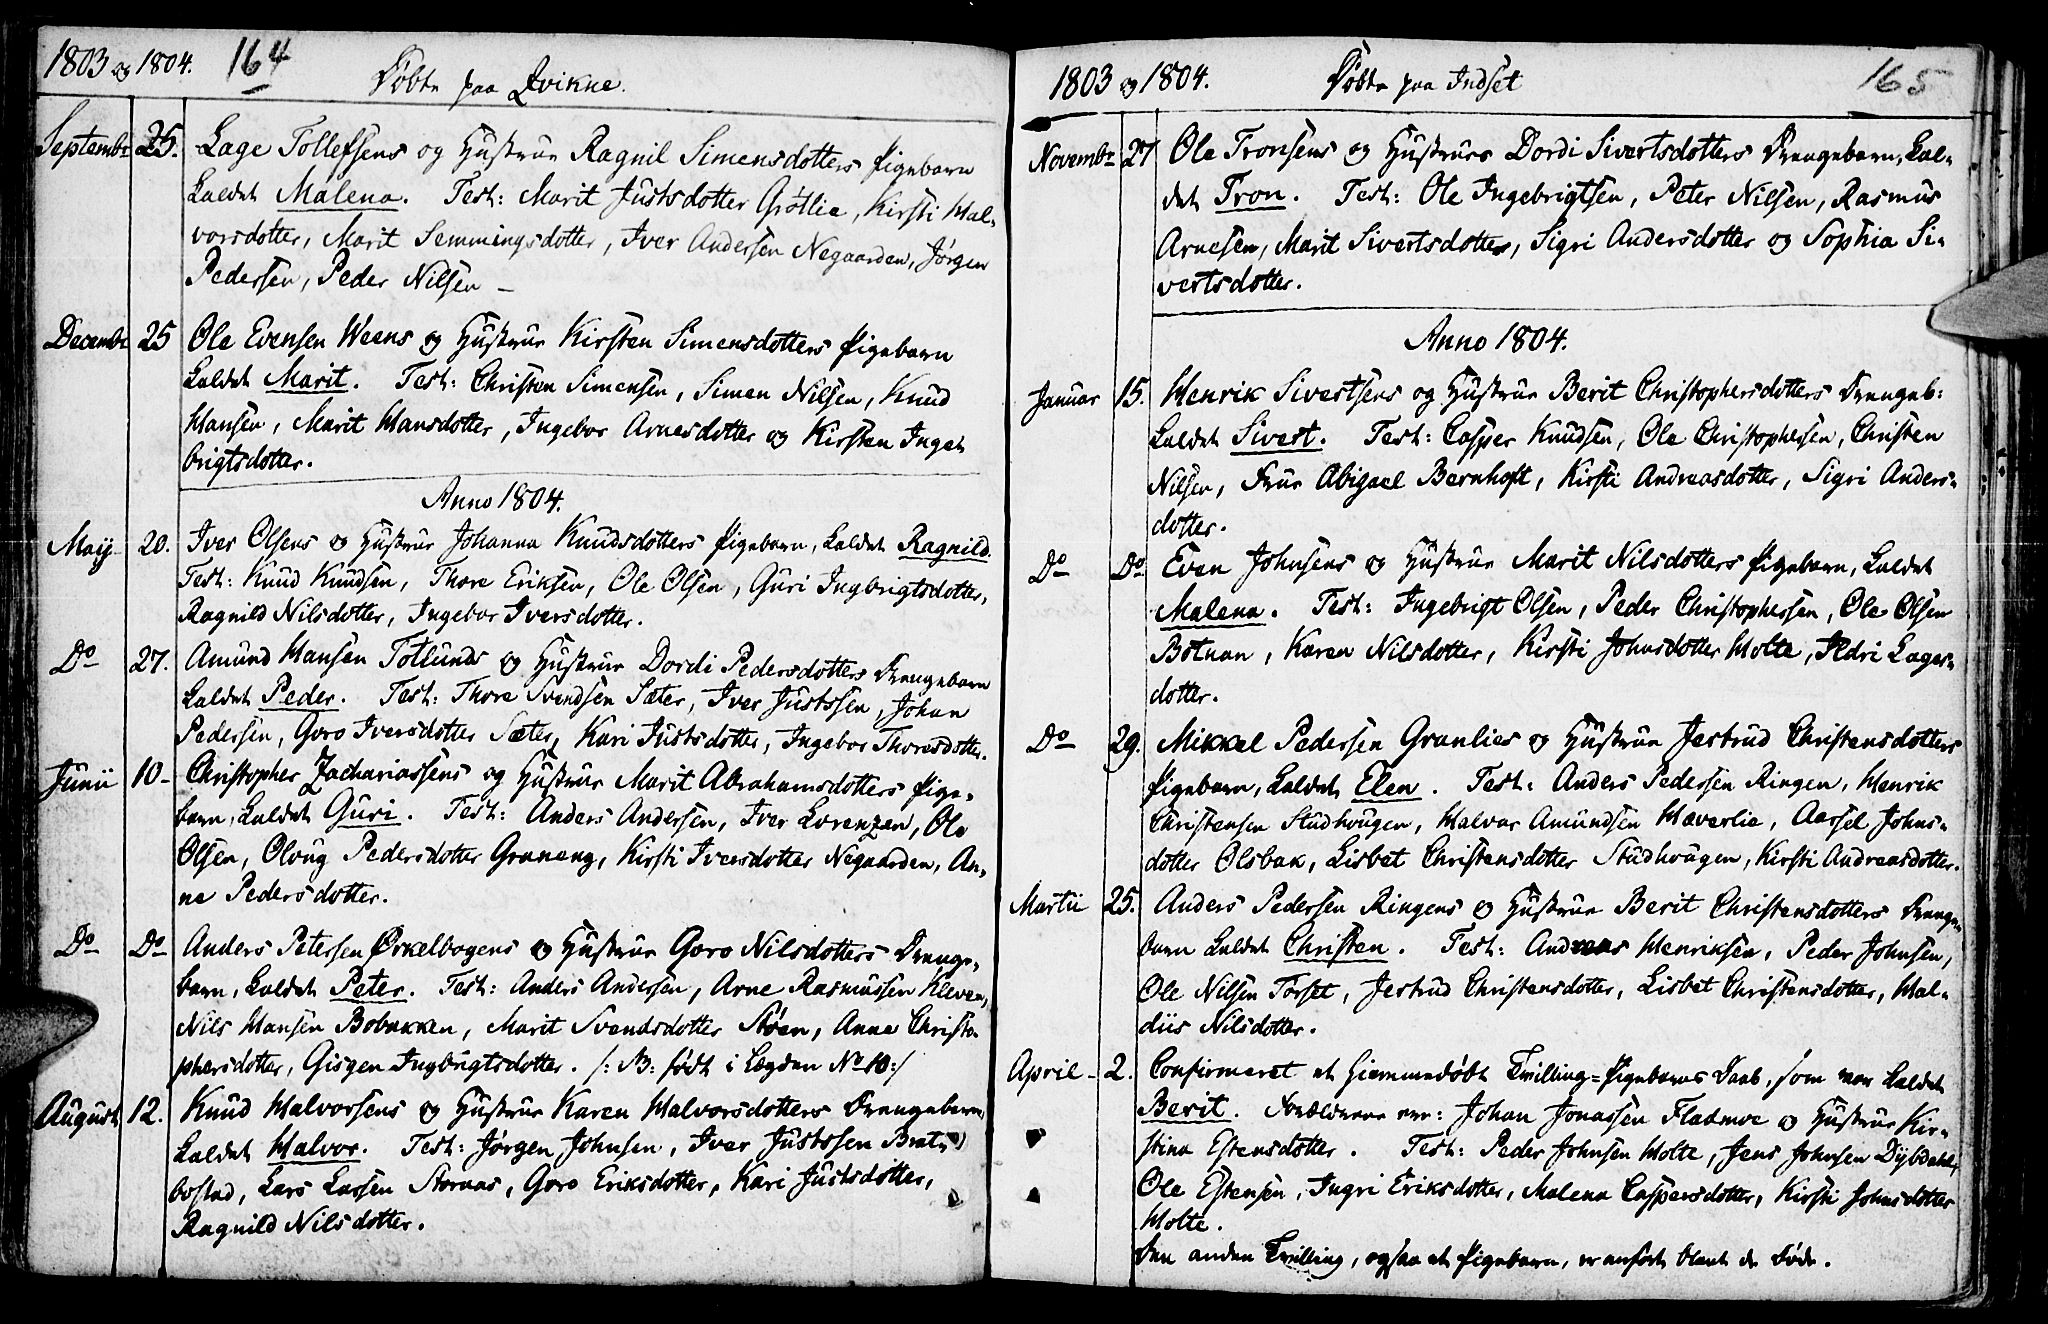 1803 og 1804. 164
Døbte paa Qvikne.
Septembr 25. Lage Tollefsens og Hustrue Ragnil Simensdotters Pigebarn
kaldet Malena. Test: Marit Justsdotter Grøtlie, Kirsti Hal-
vorsdotter, Marit Semmingsdotter, Iver Andersen Negaarden, Jørgen
Pedersen, Peder Nilsen –
Decembr 25 Ole Evensen Weens og Hustrue Kirsten Simensdotters Pigebarn
kaldet Marit. Test: Christen Simensen, Simen Nilsen, Knud
Hansen, Marit Hansdotter, Ingebor Arnesdotter og Kirsten Inge-
brigtsdotter.
Anno 1804.
Maij 20. Iver Olsens og Hustrue Johanna Knudsdotters Pigebarn, kaldet Ragnild.
Test: Knud Knudsen, Thore Eriksen, Ole Olsen, Guri Ingbrigtsdotter,
Ragnild Nilsdotter, Ingebor Iversdotter.
Do 27. Amund Hansen Totlunds og Hustrue Dordi Pedersdotters Drengebarn
kaldet Peder. Test: Thore Svendsen Sæter, Iver Justssen, Johan
Pedersen, Goro Iversdotter Sæter, Kari Justsdotter, Ingebor Thoresdotter.
Junii 10- Christopher Zachariassens og Hustrue Marit Abrahamsdotters Pige-
barn, kaldet Guri. Test: Anders Andersen, Iver Lorenzen, Ole
Olsen, Olvug Pedersdotter Graneng, Kirsti Iversdotter Negaarden, An-
ne Pedersdotter.
Do Do Anders Petersen Ørkelbogens og Hustrue Goro Nilsdotters Drenge-
barn, kaldet Peter. Test: Anders Andersen, Arne Rasmussen Kleven,
Nils Hansen Bobakken, Marit Svendsdotter Støen, Anne Christo-
phersdotter, Gisgen Ingbrigtsdotter. /: NB: født i Lægden No 10:/
August 12. Knud Halvorsens og Hustrue Karen Halvorsdotters Drengebarn,
kaldet Halvor. Test: Jørgen Johnsen, Iver Justssen Brat-
bostad, Lars Larsen Stornæs, Goro Eriksdotter, Kari Justsdotter,
Ragnild Nilsdotter.
1803 og 1804. Døbte paa Indset 165
Novembr 27 Ole Tronsens og Hustrues Dordi Sivertsdotters Drengebarn, kal-
det Tron. Test: Ole Ingebrigtsen, Peter Nilsen, Rasmus
Arnesen, Marit Sivertsdotter, Sigri Andersdotter og Sophia Si-
vertsdotter.
Anno 1804.
Januar 15. Henrik Sivertsens og Hustrue Berit Christophersdotters Drengeb:
kaldet Sivert. Test: Casper Knudsen, Ole Christophersen, Christen
Nilsen, Frue Abigael Bernhoft, Kirsti Andreasdotter, Sigri Anders-
dotter.
Do Do Even Johnsens og Hustrue Marit Nilsdotters Pigebarn, kaldet
Malena. Test: Ingebrigt Olsen, Peder Christophersen, Ole Olsen
Botnan, Karen Nilsdotter, Kirsti Johnsdotter Holte, Ildri Lages-
dotter.
Do 29. Mikkel Pedersen Granlies og Hustrue Jertrud Christensdotters
Pigebarn, kaldet Elen. Test: Anders Pedersen Ringen, Henrik
Christensen Studhougen, Halvor Amundsen Hæverlie, Aasel Johns-
dotter Olsbak, Lisbet Christensdotter Studhougen, Kirsti Andreasdotter.
Martii 25. Anders Pedersen Ringens og Hustrue Berit Christensdotters Drenge-
barn kaldet Christen. Test: Andreas Henriksen, Peder Johnsen,
Ole Nilsen Torset, Jertrud Christensdotter, Lisbet Christensdotter, Hal-
diis Nilsdotter.
April 2. Confirmeret et hiemmedøbt Tvilling=Pigebarns Daab, som var kaldet
Berit. Forældrene ere: Johan Jonassen Fladmoe og Hustrue Kir-
stina Estensdotter. Test: Peder Johnsen Holte, Jens Johnsen Dybdahl,
Ole Estensen, Ingri Eriksdotter, Malena Caspersdotter, Kirsti Johnsdotter
Holte.
Den anden Tvilling, ogsaa et Pigebarn, er anført blant de Døde.